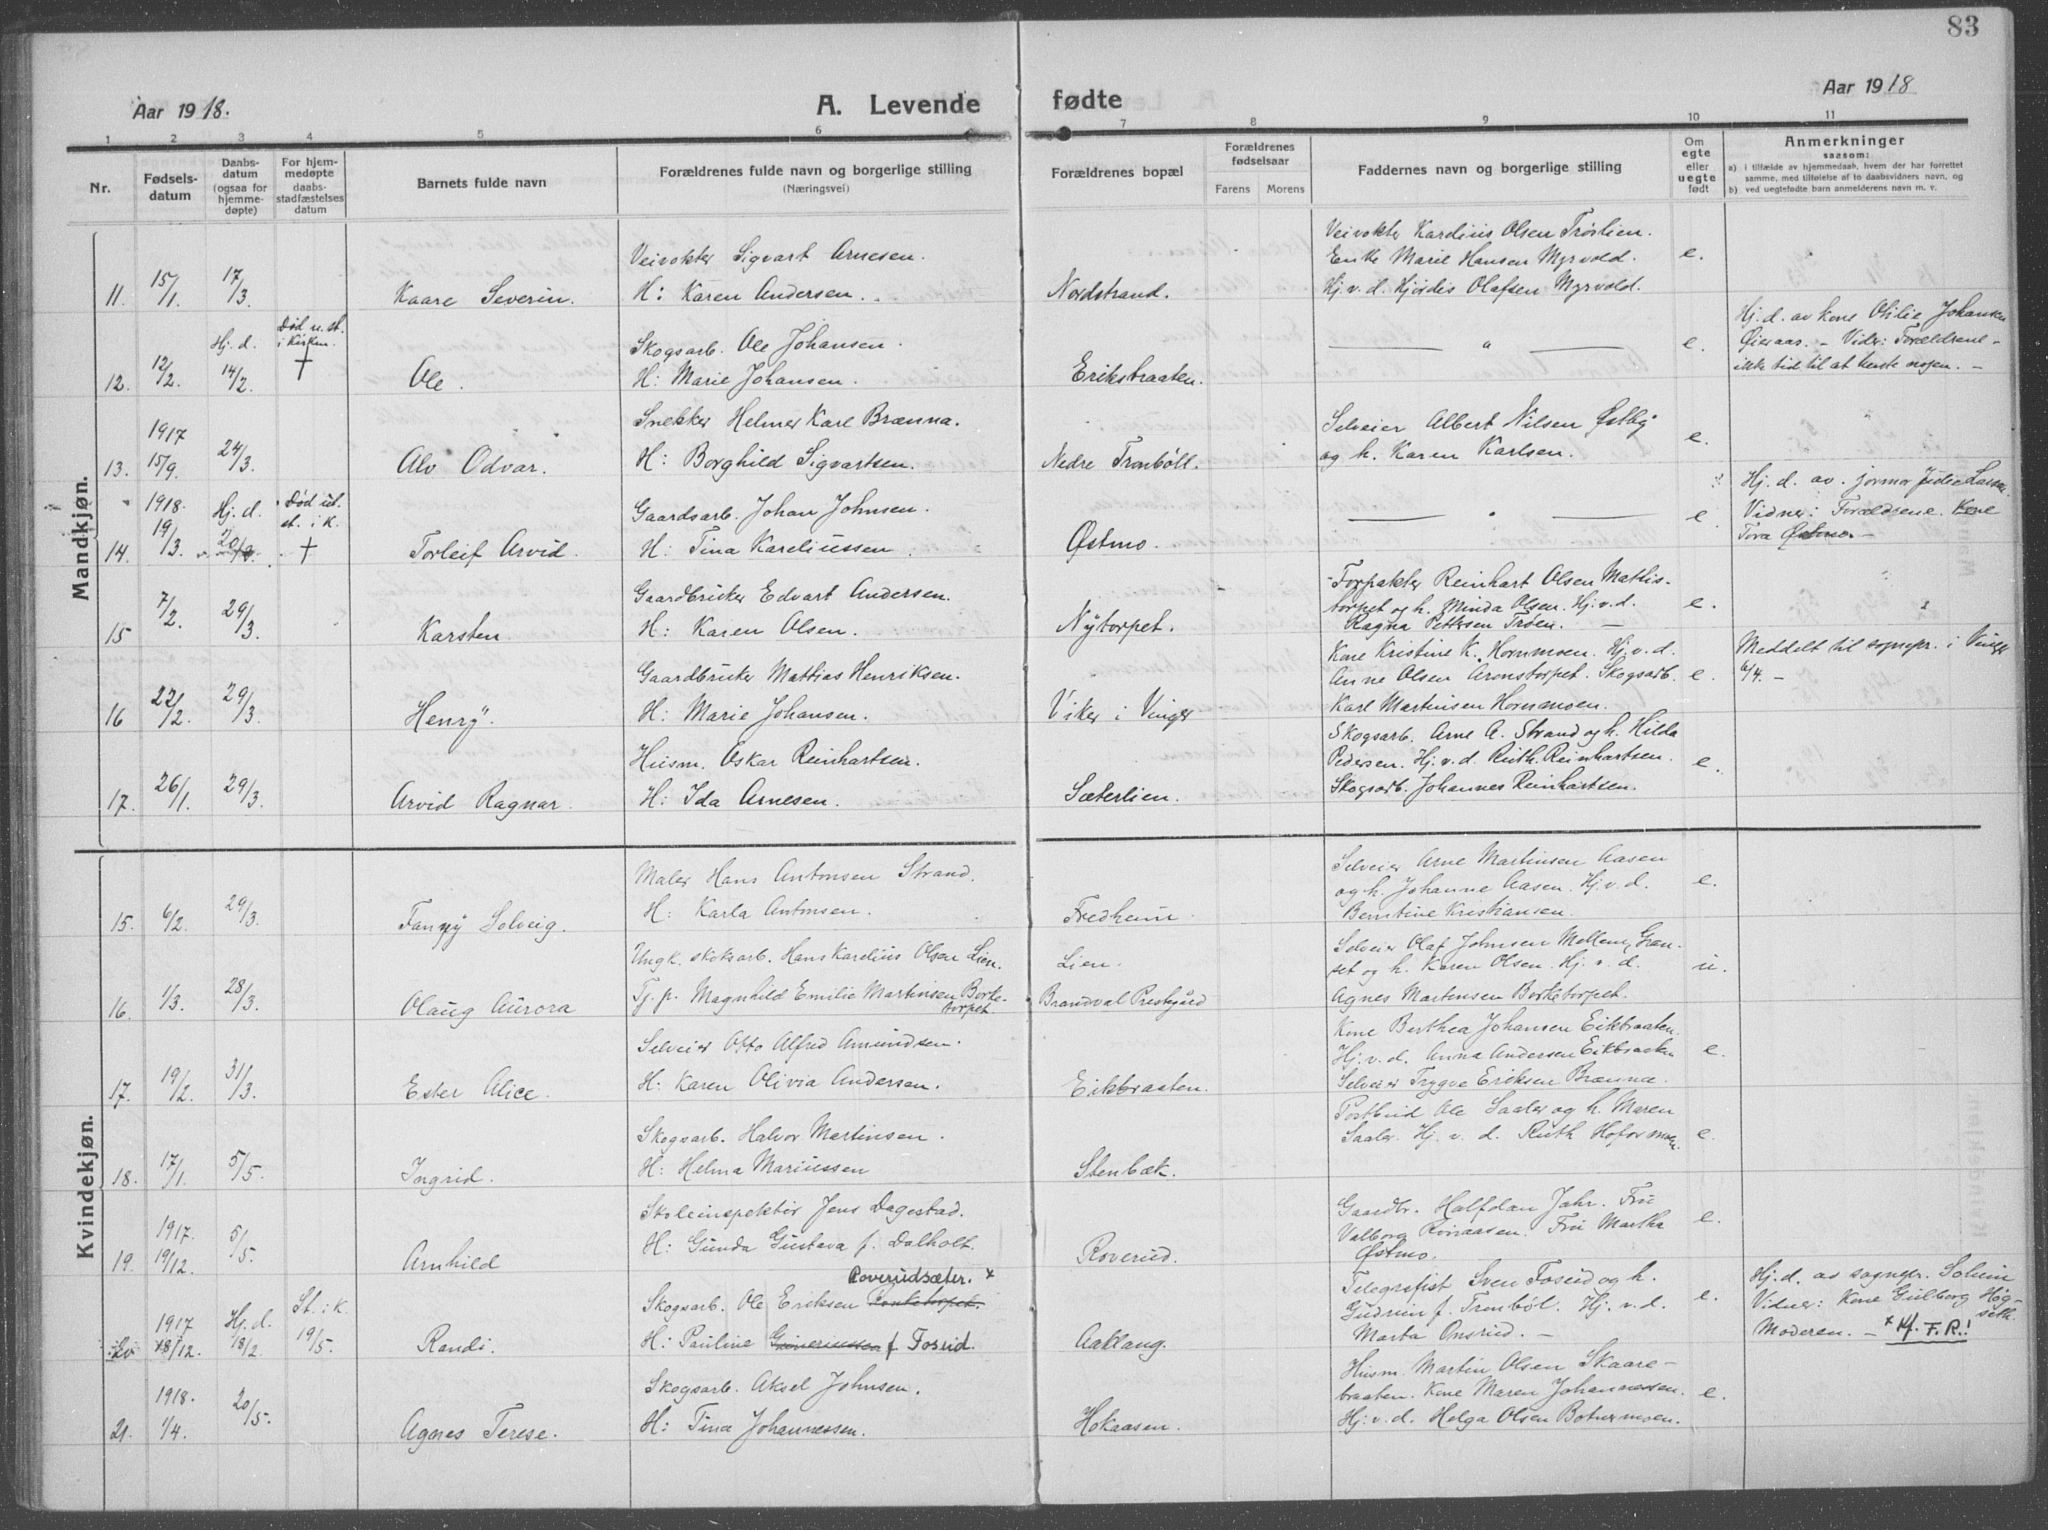 83
Aar 1918.
A. Levende fødte
Aar 1918
1 2 3 4 5 6 7 8 9 10 11
Nr.
Fødsels-
datum
Daabs-
datum
(ogsaa for
hjemme-
døpte)
For hjem-
medøpte
daabs-
stadfæstelses
datum
Barnets fulde navn
Forældrenes fulde navn og borgerlige stilling
(Næringsvei)
Forældrenes bopæl
Forældrenes
fødselsaar
Farens Morens
Faddernes navn og borgerlige stilling
Om
egte
eller
uegte
født
Anmerkninger
saasom:
a) i tilfælde av hjemmedaab, hvem der har forrettet
samme, med tilføielse af to daabsvidners navn, og
b) ved uegtefødte børn anmelderens navn m. v.
Mandkjøn.
Veivokter Sigvart Arnesen.
11. 15/1. 17/3. Kaare Severin. H: Karen Andersen. Nordstrand.
Veivokter Kardius Olsen Trøslien.
Enke Marie Hansen Myrvold. e.
Hj. v. d. Hjørdis Olafsen Myrvold.
Hj. d. Død u. st.
i Kirken.
Skogsarb. Ole Johansen.
12. 12/2. 14/2. † Ole. H: Marie Johansen. Erikstraaten. — " — e.
Hj. d. av kone Ohlie Johansen
Øieraas. - Vidner: Forældrene -
ikke tid til at hente nogen. -
1917
Snekker Helmer Karl Brænna.
13. 15/9. 24/3. Alv Odvar. H: Borghild Sigvartsen. Nedre Tronbøll.
Selveier Albert Nilsen Østby
og h. Karen Karlsen. e.
1918. Hj. d. Død u. st.
st. i k.
Gaardsarb. Johan Johnsen.
14. 19/3. 20/3. † Torleif Arvid. H: Tina Kareliussen Østmo. — " — e
Hj. d. av jormor Julie Larsen.
Vidner: Forældrene. Kone
Tora Østmo. -
Gaardbruker Edvart Andersen.
15 7/2. 29/3. Karsten H: Karen Olsen. Nytorpet.
Forpakter Reinhart Olsen Mattis-
torpet og h. Minda Olsen. Hj. v. d. e.
Ragna Pettersen Troen. —
Gaardbruker Mattias Henriksen.
16 22/2. 29/3. Henry. H: Marie Johansen. Viker i Vinger
Kone Kristine K. Hornmoen. Hj. v. d.
Anne Olsen Aronstorpet. Skogsarb. e.
Karl Martinsen Hornmoen.
Meddelt til sognepr. i Vinger
6/4. -
Husm. Oskar Reinhartsen.
17. 26/1. 29/3. Arvid Ragnar. H: Ida Arnesen. Sæterlien.
Skogsarb. Arne A. Strand og h. Hilda
Pedersen. Hj. v. d. Ruth. Reinhartsen. e.
Skogsarb. Johannes Reinhartsen.
Kvindekjøn.
Maler Hans Antonsen Strand.
15. 6/2. 29/3. Fanny Solveig. H: Karla Antonsen. Fredheim
Selveier Arne Martinsen Aasen
og h. Johanne Aasen. Hj. v. d. e.
Berntine Kristiansen.
Ungk. skoksarb. Hans Kardius Olsen Lien. Lien.
16. 1/3. 28/3. Olaug Aurora Tj. p. Magnhild Emilie Martinsen Borke-
torpet. Brandval Prestgård
Selveier Olaf Johnsen Mellem Græn-
set og h. Karen Olsen. Hj. v. d. u.
Agnes Martensen Borketorpet.
Selveier Otto Alfred Amundsen.
17. 19/2. 31/3. Ester Alice. H: Karen Olivia Andersen. Eikbraaten.
Kone Berthea Johansen Eikbraaten.
Hj. v. d. Anna Andersen Eikbraaten e.
Selveier Trygve Eriksen Brænna.
Skogsarb. Halvor Martinsen.
18. 17/1. 5/5. Ingrid. H: Helma Mariussen Stenbæk.
Postbud Ole Saaler og h. Maren
Saaler. Hj. v. d. Ruth Hoformoen. e.
1917. Skoleinspektør Jens Dagestad.
19. 19/12. 5/5. Arnhild H: Gunda Gustava f. Dalholt. Roverud.
Gaardbr. Halfdan Jahr. Fru
Valborg Rønaasen. Fru Martha e.
Østmo.
Roverudsæter. ×
1917 Hj. d. St. i k. Skogsarb. Ole Eriksen
18/12. 18/2. 19/5. Randi. H: Pauline f. Fosrid. Aaklang.
Telegrafist Sven Fosrud og h.
Gudrun f. Tronbøl. Hj. v. d. e.
Marta Onsrud. -
Hj. d. av sognepr. Solum
Vidner: Kone Gulborg Høg-
seth.
Moderen. - × Kf. F. R.!
1918. Skogsarb. Aksel Johnsen.
21. 1/4. 20/5. Agnes Terese. H: Tina Johannessen. Hokaasen.
Husm. Martin Olsen Skaare-
braaten. Kone Maren Johannessen. e.
Hj. v. d. Helga Olsen Boturmoen.